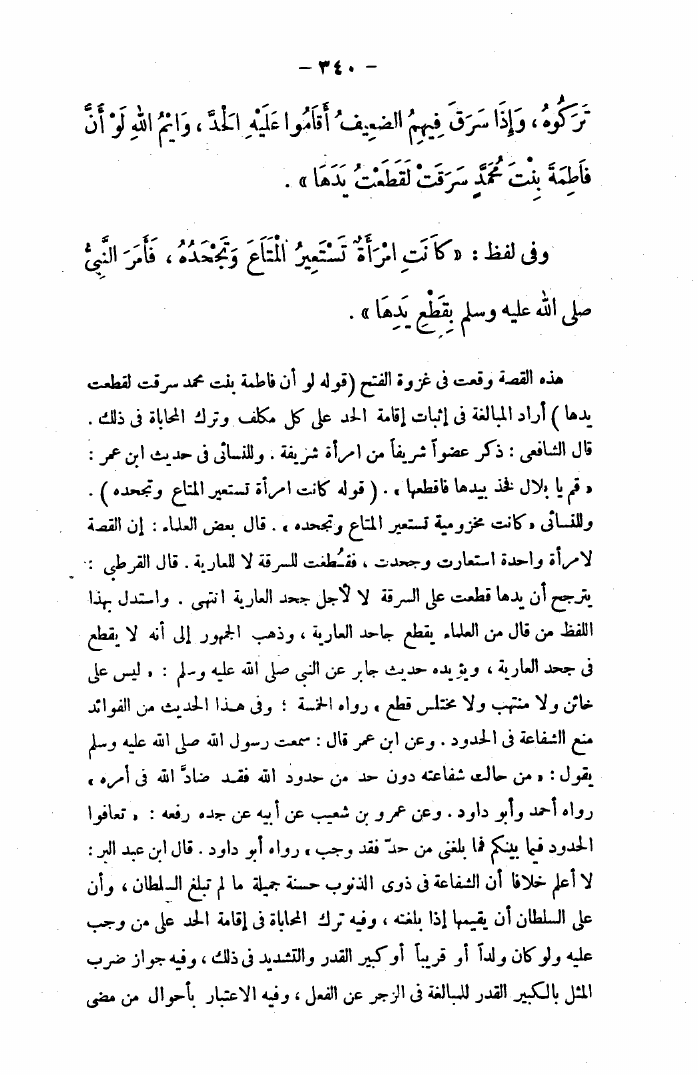 - ٣٤٠ -
تَرَكُوهُ، وَإِذَا سَرَقَ فِيهِمُ الضعِيفُ أَقَامُوا عَلَيْهِ الْحَدَّ، وَايْمُ اللهِ لَوْ أَنَّ
فَاطِمَةَ بِنْتَ مُحَمَّدٍ سَرَقَتْ لَقَطَعْتُ يَدَهَا» .
وفى لفظ : «كَانَتِ امْرَأَةٌ تَسْتَعِيرُ الْمَتَاعَ وَتَجْحَدُهُ، فَأَمَرَ النَّبِيُّ
صلى الله عليه وسلم بِقَطْعِ يَدِهَا» .
هذه القصة وقعت فى غزوة الفتح (قوله لو أن فاطمة بنت محمد سرقت لقطعت
يدها ) أراد المبالغة فى إثبات إقامة الحد على كل مكلف وترك المحاباة فى ذلك .
قال الشافعى : ذكر عضواً شريفاً من امرأة شريفة . وللنسائى فى حديث ابن عمر :
« قم يا بلال فخذ بيدها فاقطعها » . ( قوله كانت امرأة تستعير المتاع وتجحده ) .
وللنسائى « كانت مخزومية تستعير المتاع وتجحده » . قال بعض العلماء : إن القصة
لامرأة واحدة استعارت وجحدت ، فقُطعت للسرقة لا للعارية . قال القرطبى :
يترجح أن يدها قطعت على السرقة لا لأجل جحد العارية انتهى . واستدل بهذا
اللفظ من قال من العلماء يقطع جاحد العارية ، وذهب الجمهور إلى أنه لا يقطع
فى جحد العارية ، ويؤيده حديث جابر عن النبى صلى الله عليه وسلم : « ليس على
خائن ولا منتهب ولا مختلس قطع » رواه الخمسة ؛ وفى هذا الحديث من الفوائد
منع الشفاعة فى الحدود . وعن ابن عمر قال : سمعت رسول الله صلى الله عليه وسلم
يقول : « من حالت شفاعته دون حد من حدود الله فقد ضادَّ الله فى أمره »
رواه أحمد وأبو داود . وعن عمرو بن شعيب عن أبيه عن جده رفعه : « تعافوا
الحدود فيما بينكم فما بلغنى من حدّ فقد وجب » رواه أبو داود . قال ابن عبد البر :
لا أعلم خلافا أن الشفاعة فى ذوى الذنوب حسنة جميلة ما لم تبلغ السلطان ، وأن
على السلطان أن يقيمها إذا بلغته ، وفيه ترك المحاباة فى إقامة الحد على من وجب
عليه ولو كان ولداً أو قريباً أو كبير القدر والتشديد فى ذلك ، وفيه جواز ضرب
المثل بالكبير القدر للمبالغة فى الزجر عن الفعل ، وفيه الاعتبار بأحوال من مضى